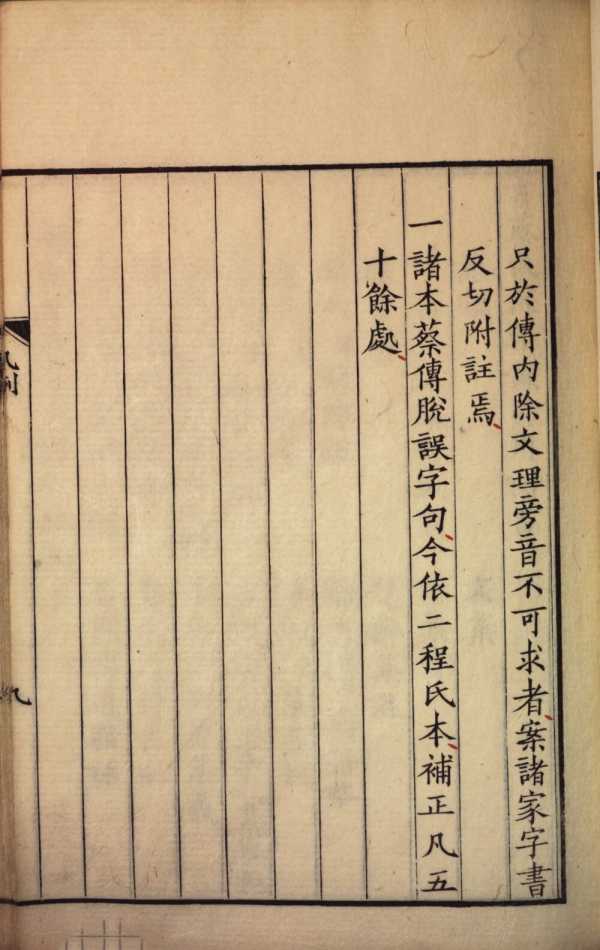 只於傳内除文理旁音不可求者案諸家字書
反切附註焉
一諸本蔡傳脫誤字句今依二程氏本補正凡五
十餘處
凡例
九